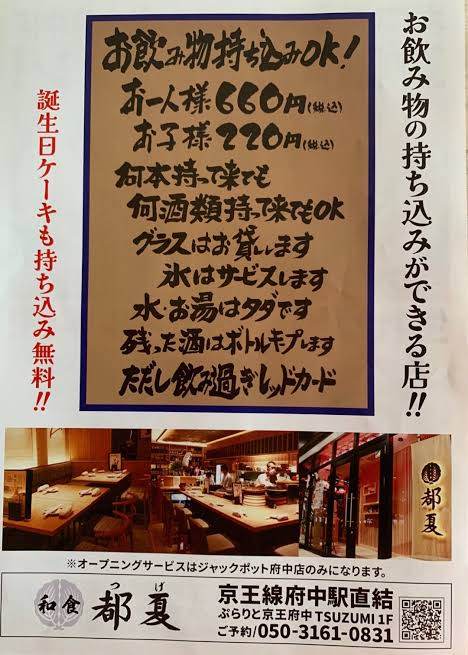 お飲み物の持ち込みができる店!!
お飲み物持ち込みOK!
お一人様660円(税込)
お子様220円(税込)
何本持って来ても
何酒類持って来てもOK
グラスはお貸しします
氷はサービスします
水・お湯はタダです
残った酒はボトルキプします
ただし飲み過ぎレッドカード
誕生日ケーキも持ち込み無料!!
都夏
※オープニングサービスはジャックポット府中店のみになります。
和食
つげ
都夏
京王線府中駅直結
ぷらりと京王府中TSUZUMI 1F
ご予約/050-3161-0831